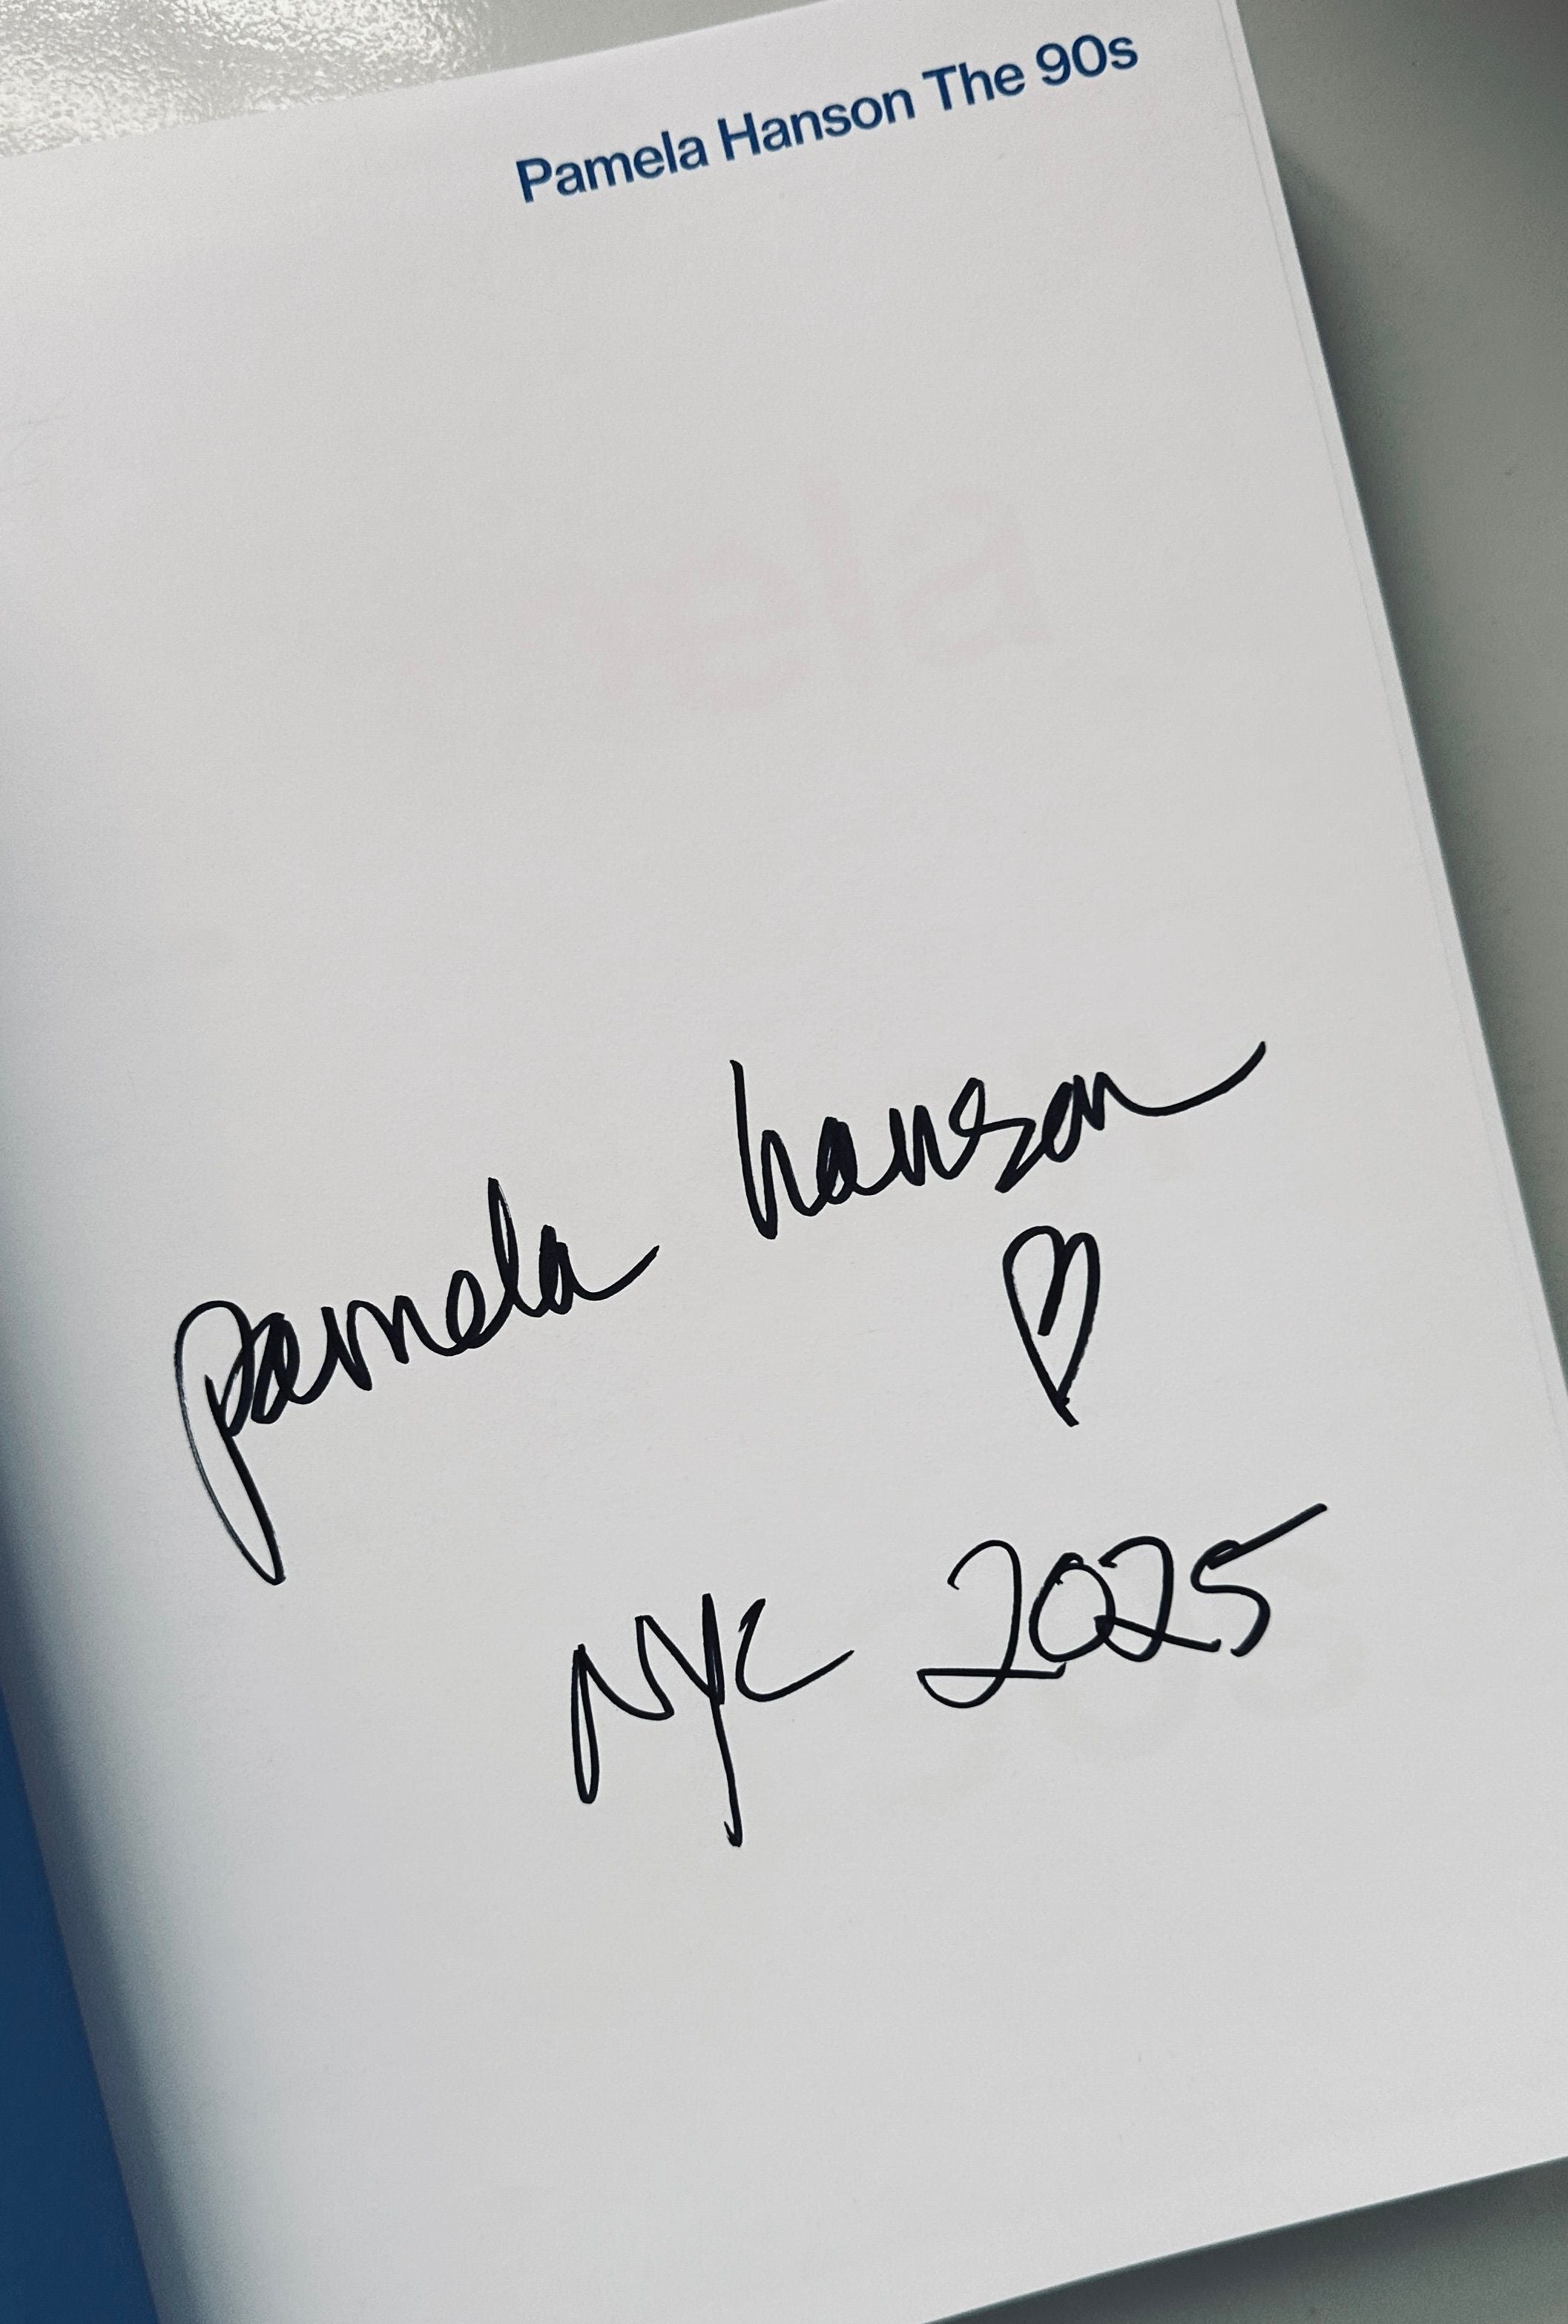 Pamela Hanson The 90s
pamela hanson
NYC 2025